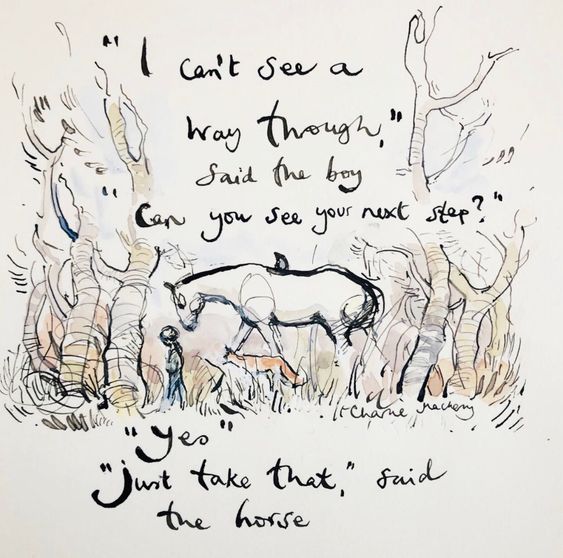 "I can't see a
way though,"
said the boy
"Can you see your next step?"
Charlie Mackesy
"Yes"
"just take that," said
the horse